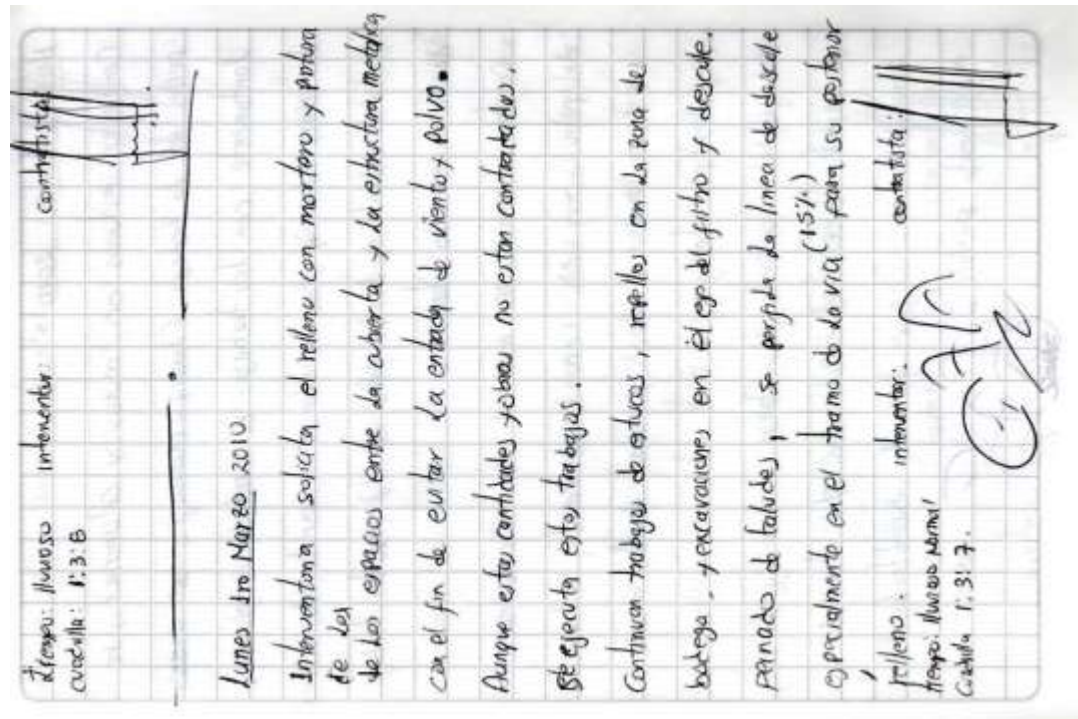 Tiempo: lluvioso interventor: contratista:
cuadrilla: 1:3:8
Lunes 1ro Marzo 2010
Interventoria solicita el relleno con mortero y pintura
de los
de los espacios entre la cubierta y la estructura metalica
con el fin de evitar la entrada de viento y polvo.
Aunque estas cantidades y obras no estan contratadas.
se ejecuta estos trabajos.
Continuan trabajos de estucos, repellos en la zona de
bodega, y excavaciones en el eje del filtro y descole.
peinado de taludes, se perfila la linea de descole
especialmente en el tramo de la via (15%) para su posterior
relleno. interventor: contratista:
tiempo: lluvioso normal
Cuadrilla 1:3:7.